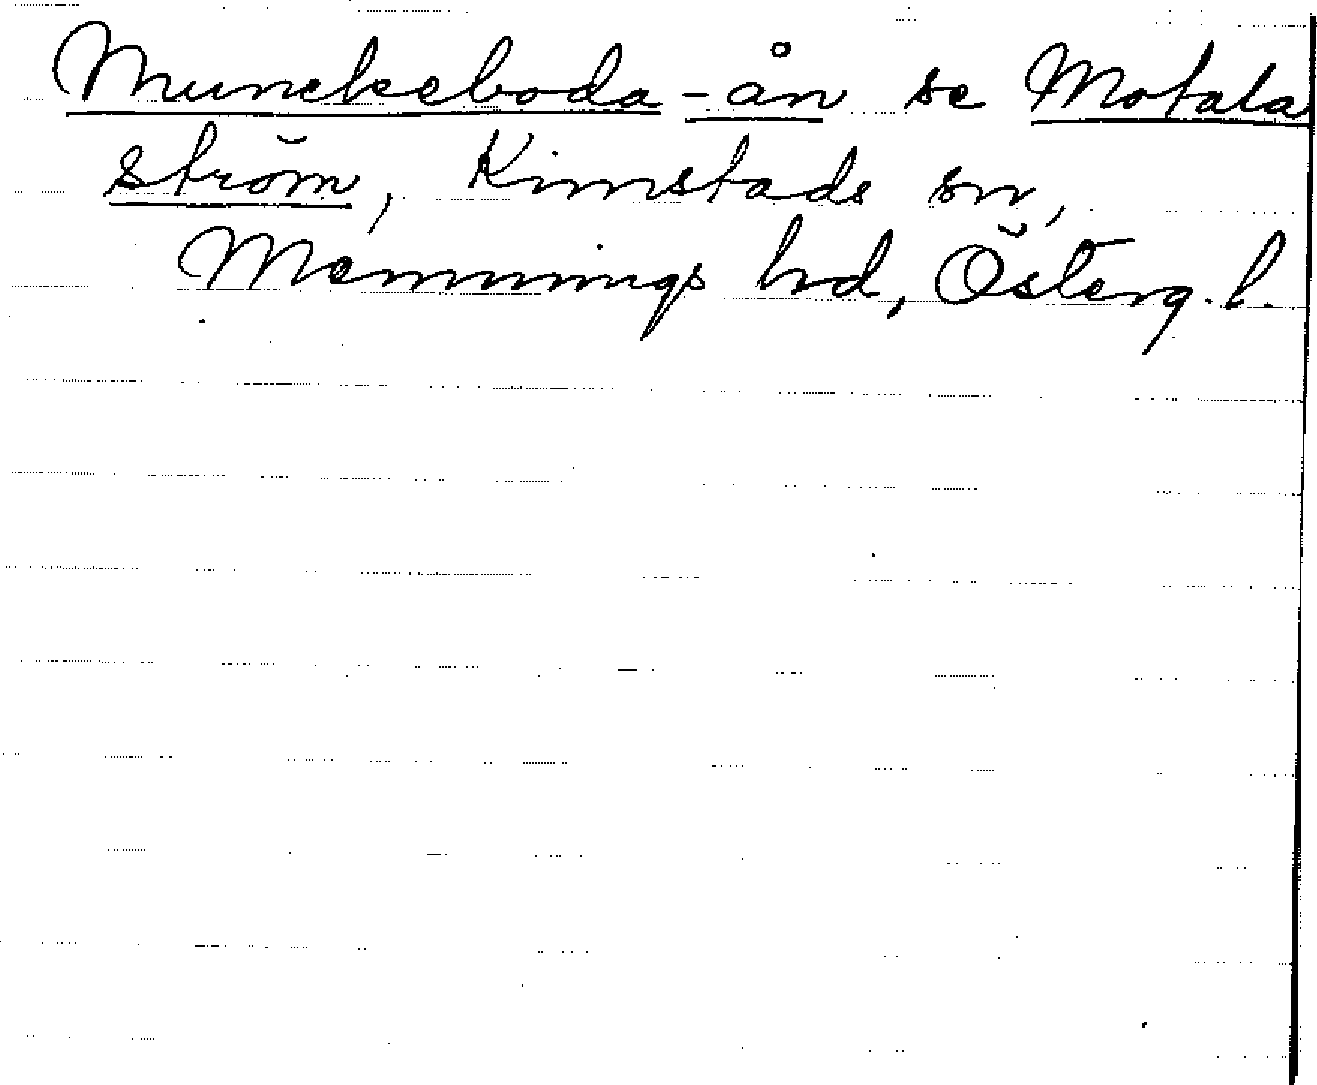 Munckeboda-ån se Motala
ström, Kimstads sn,
Memmings hd, Österg. l.